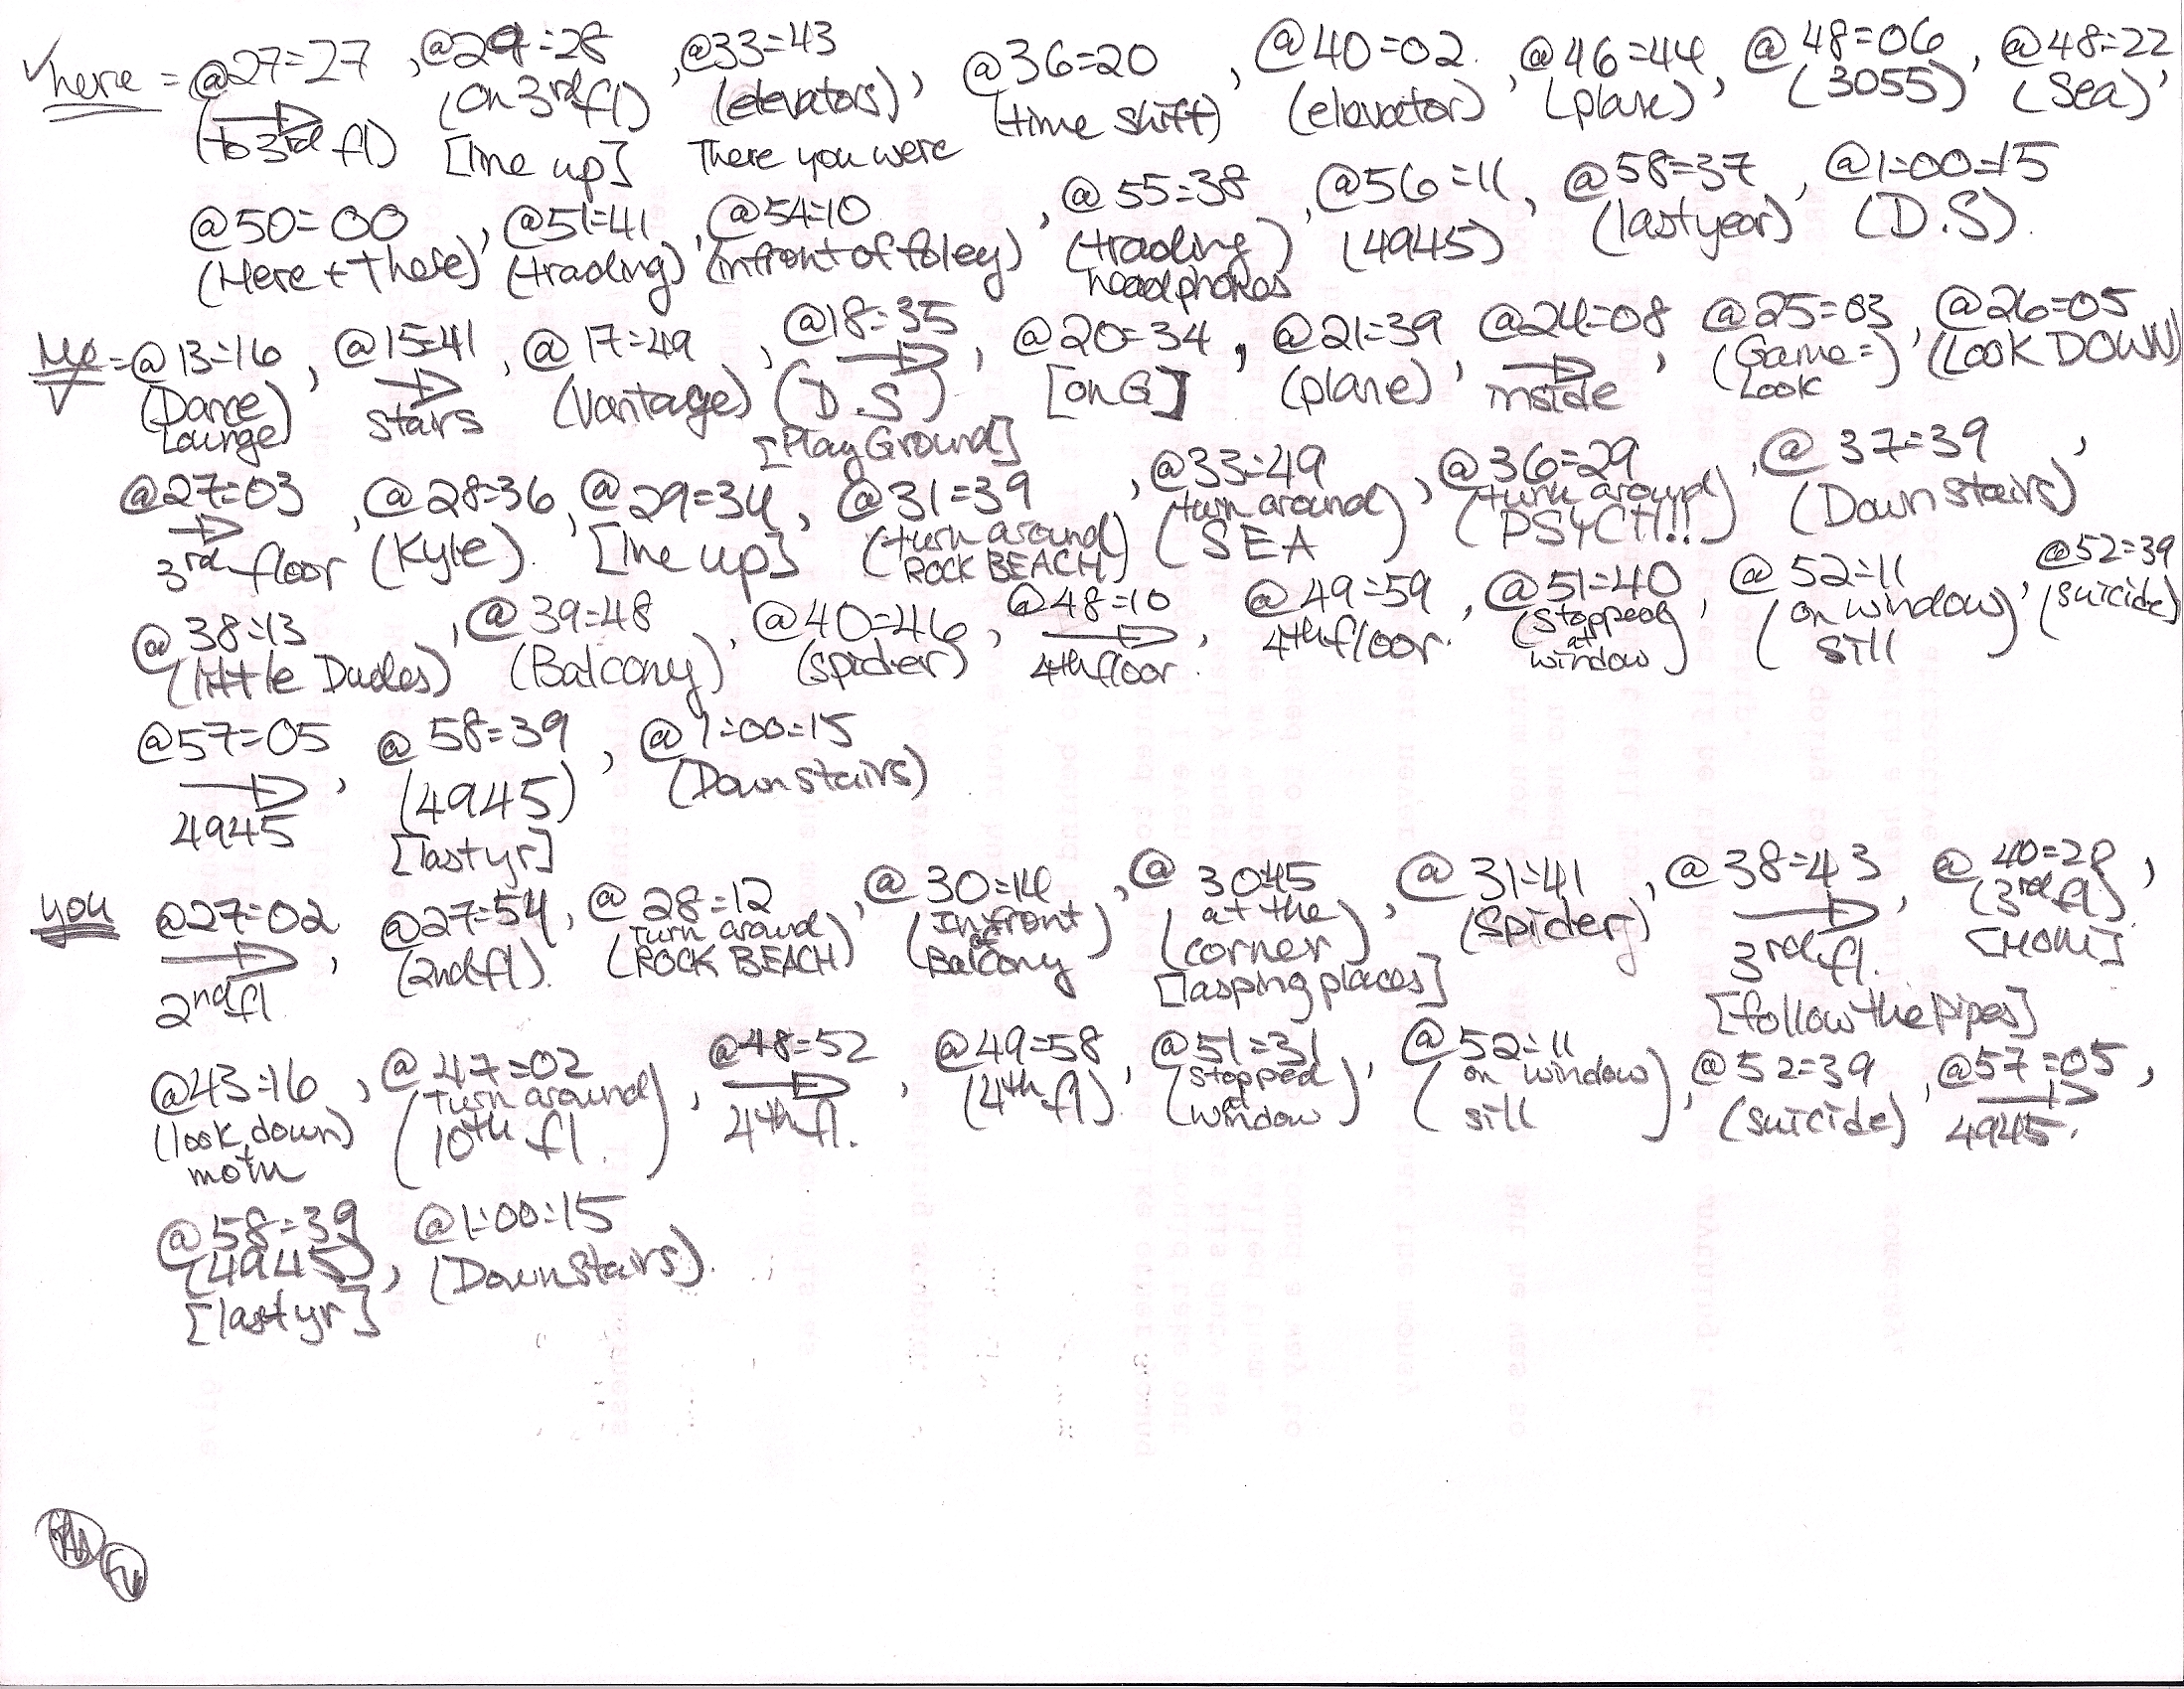 ✓here = @27=27, @29=28, @33=43, @36=20, @40=02, @46=44, @48=06, @48=22,
(to 3rd fl) (on 3rd fl) (elevators) (time shift) (elevator) (plane) (3055) (Sea)
[line up] There you were
@50=00, @51=41, @54=10, @55=38, @56=11, @58=37, @1=00=15
(Here + There) (trading) (infront of foley) (trading headphones) (4945) (last year) (D.S).
Me = @13=16, @15=41, @17=49, @18=35, @20=34, @21=39, @24=08, @25=03, @26=05
(Dance Lounge) → stairs (Vantage) → (D.S) [on G] (plane) → inside (Game=) Look (LOOK DOWN)
[Play Ground]
@27=03, @28=36, @29=34, @31=39, @33=49, @36=29, @37=39,
→ 3rd floor (Kyle) [line up] (turn around ROCK BEACH) (turn around SEA) (turn around PSYCH!!) (Down stairs)
@38=13, @39=48, @40=46, @48=10, @49=59, @51=40, @52=11, @52=39
(little Dudes) (Balcony) (spider) → 4th floor. 4th floor. (stopped at window) (on window sill) (suicide)
@57=05, @58=39, @1=00=15
→ 4945 (4945) (Down stairs)
[last yr]
you @27=02, @27=54, @28=12, @30=14, @30=45, @31=41, @38=43, @40=28,
→ 2nd fl (2nd fl). (turn around ROCK BEACH) (In front of Balcony) (at the corner) (Spider) → 3rd fl. (3rd fl)
[follow the pipes]
@43=16, @47=02, @48=52, @49=58, @51=31, @52=11, @52=39, @57=05,
(look down) moth (turn around 10th fl.) → 4th fl. (4th fl) (stopped at window) (on window sill) (suicide) → 4945.
@58=39, @1=00=15
(4945) (Down stairs).
[last yr]